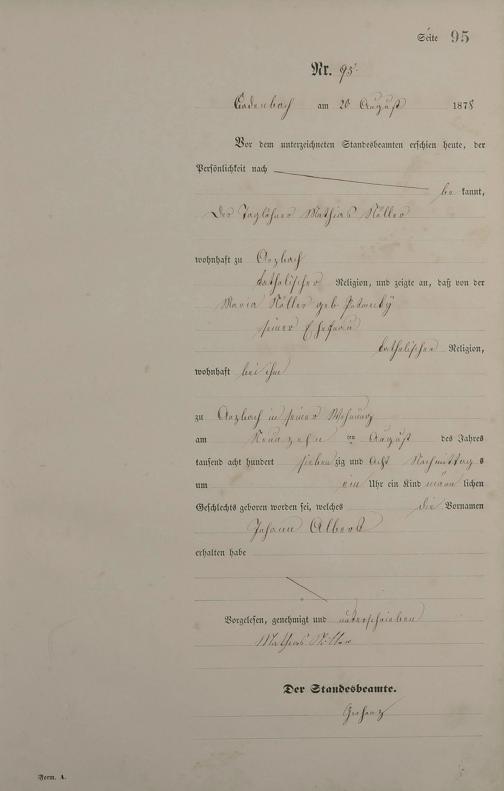 Seite 95
Nr. 95.
am 20 August 1878
Vor dem unterzeichneten Standesbeamten erschien heute, der
Persönlichkeit nach
be kannt,
der Taglöhner Mathias Köller
wohnhaft zu Arzbach
katholischer Religion, und zeigte an, daß von der
Maria Köller geb
seiner Ehefrau
katholischer Religion,
wohnhaft bei ihm
zu Arzbach in seiner Wohnung
am Neunzehn ten August des Jahres
tausend acht hundert sieben zig und Acht Nachmittag s
um ein Uhr ein Kind männ lichen
Geschlechts geboren worden sei, welches die Vornamen
Johann Albert
erhalten habe
Vorgelesen, genehmigt und unterschrieben
Mathias Köller
Der Standesbeamte.
Form. A.